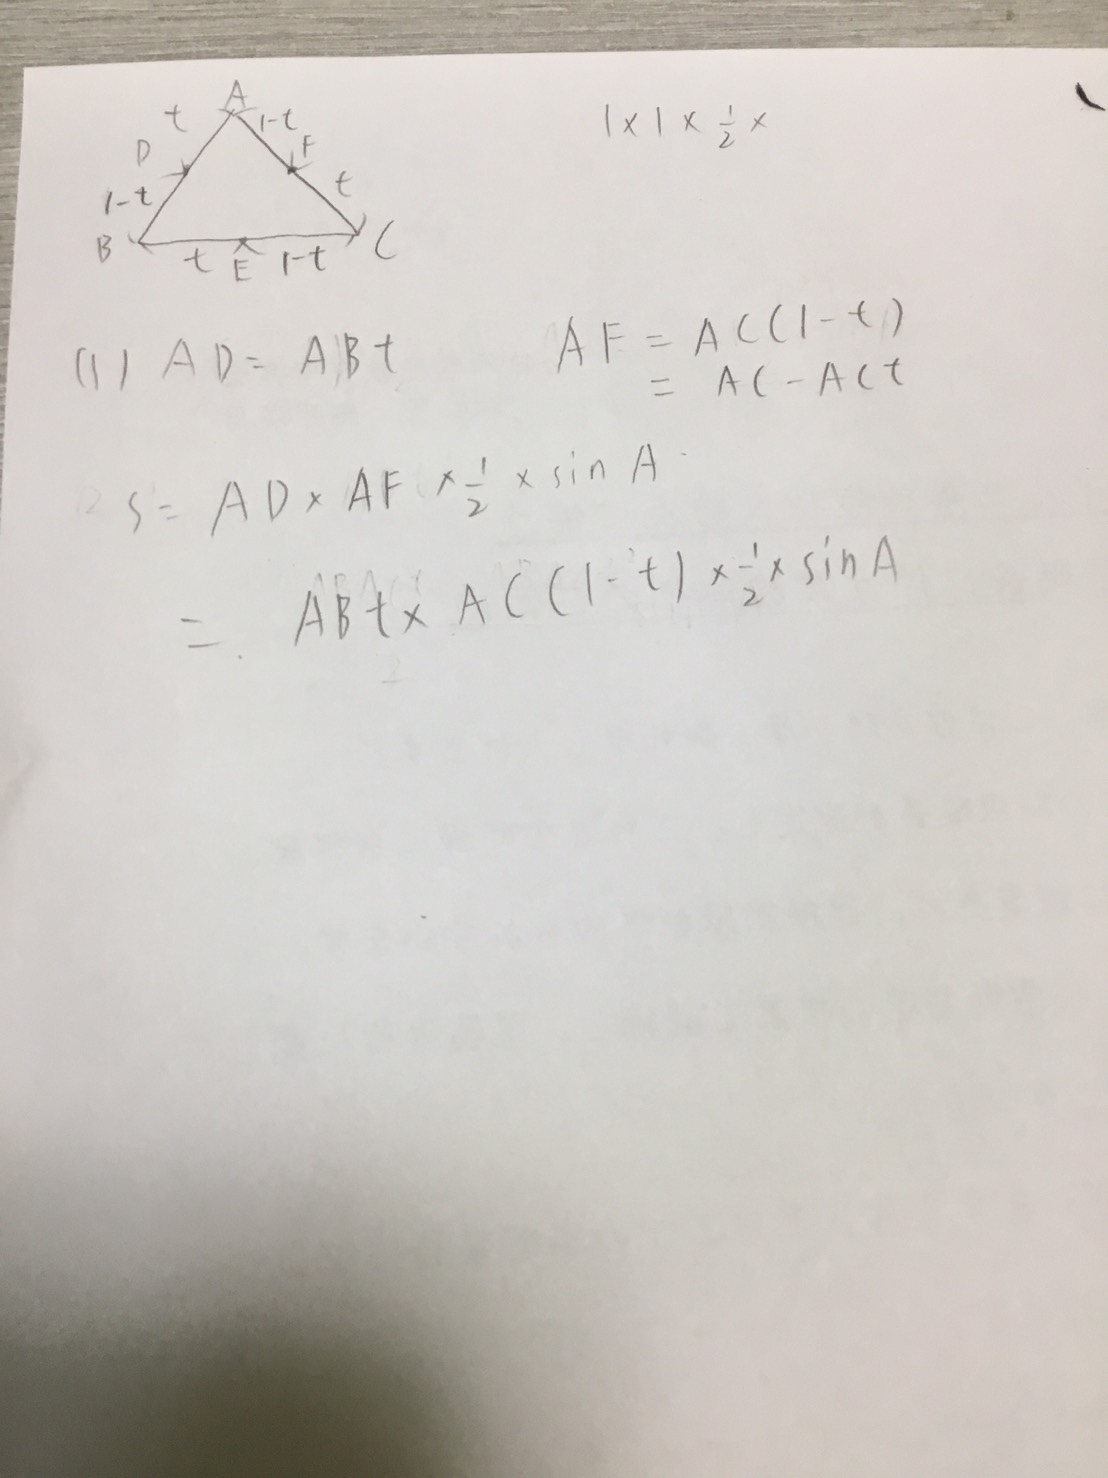 A
t 1-t
D F
1-t t
B t E 1-t C
1×1×1/2×
(1) AD= ABt
AF = AC(1-t)
= AC-ACt
S= AD×AF×1/2×sinA
= ABt×AC(1-t)×1/2×sinA